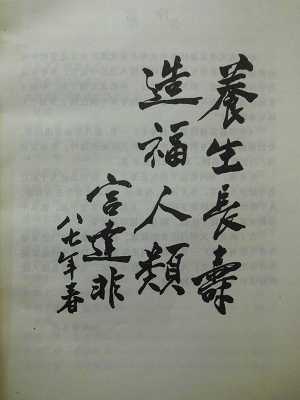 養生長壽
造福人類
宫達非
八七年春